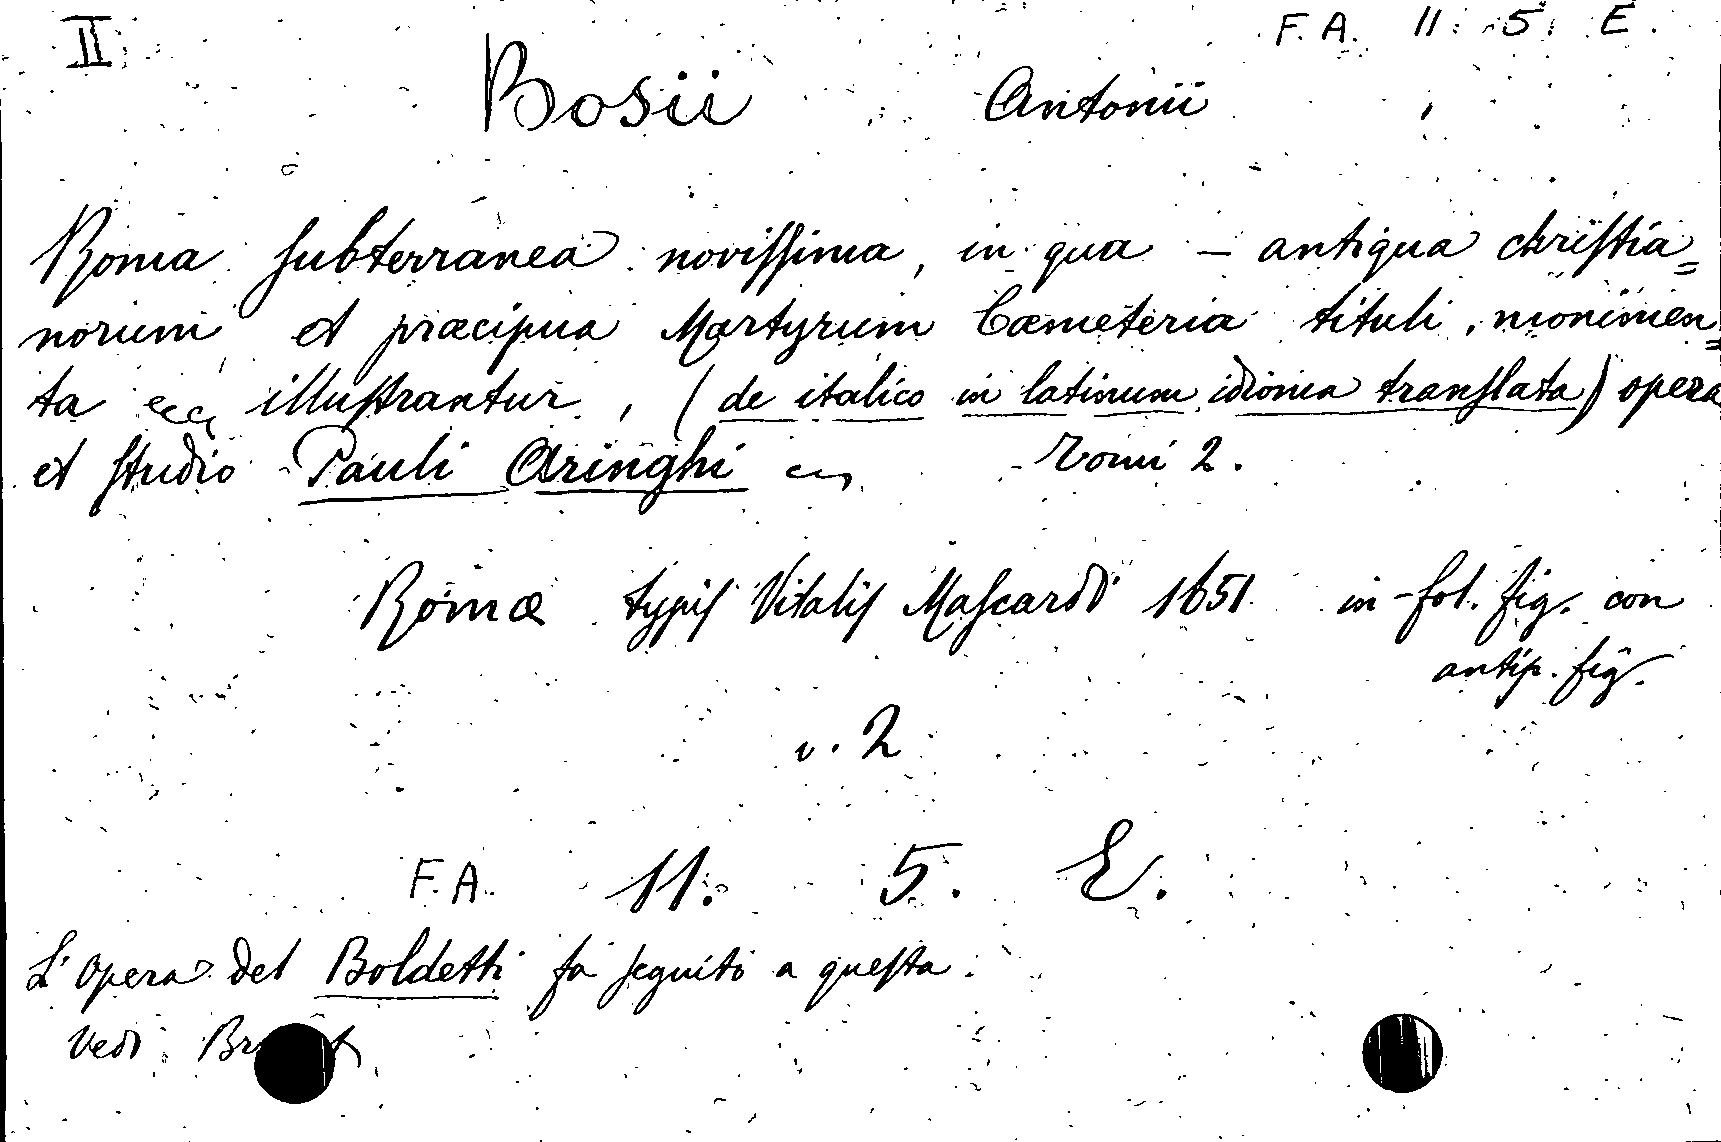 II F. A. 11. 5. E.
Bosii Antonii
Roma subterranea novissima, in qua – antiqua christia=
norum et præcipua Martyrum Cœmeteria tituli, monimen=
ta ecc illustrantur, (de italico in latinum idioma translata) opera
et studio Pauli Aringhi Tomi 2.
Romæ typis Vitalis Mascardi 1651 in-fol. fig. con
antip. fig.
v. 2
F. A. 11. 5. E.
L'opera del Boldetti fa seguito a questa.
Vedi